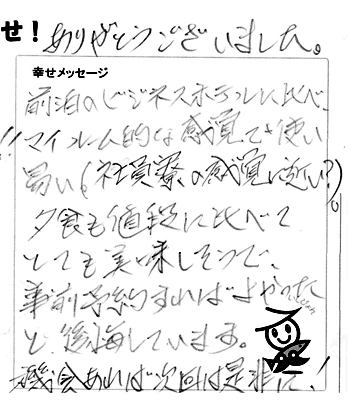 せ！ありがとうございました。
幸せメッセージ
前泊のビジネスホテルに比べ、
マイルーム的な感覚で使い
易い（社員寮の感覚に近い？）。
夕食も値段に比べて
とても美味しそうで、
事前予約すればよかった
と後悔しています。
機会あれば次回は是非に！